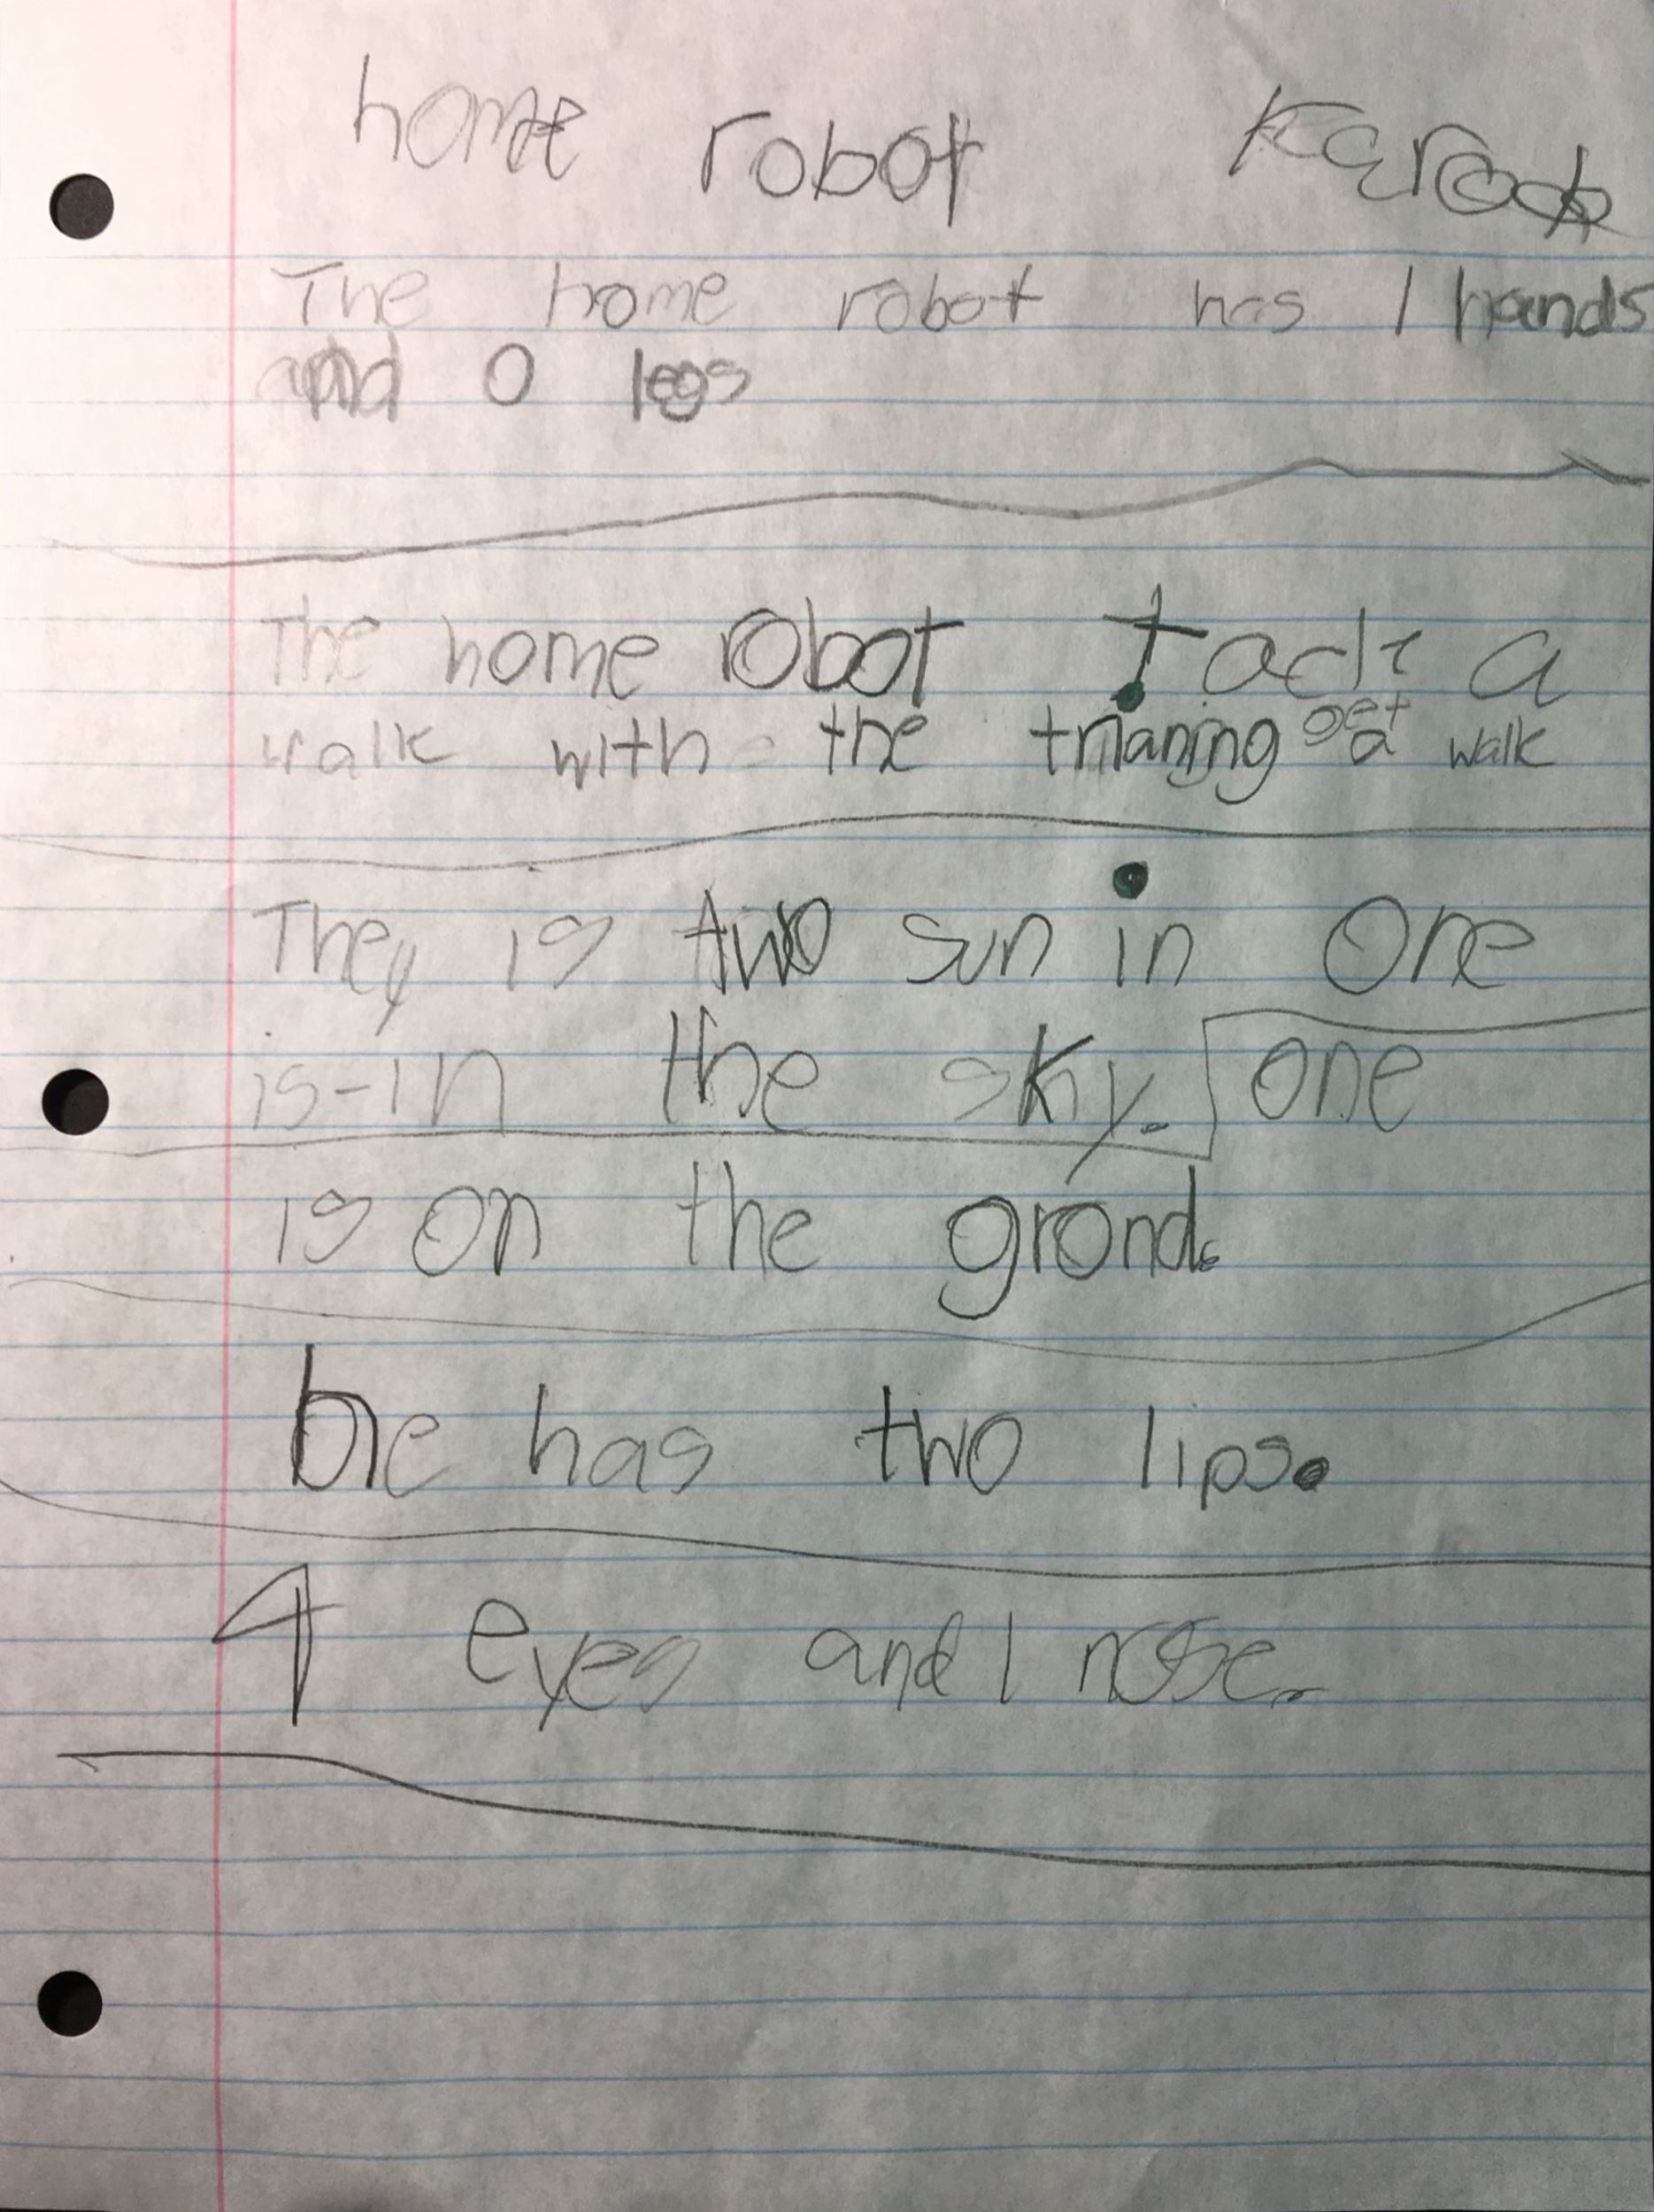 home robot
The home robot has 1 hands
and 0 legs
The home robot tack a
walk with the trianing get a walk
They is two sun in one
is-in the sky. one
is on the grond.
he has two lips.
4 eyes and 1 nose.